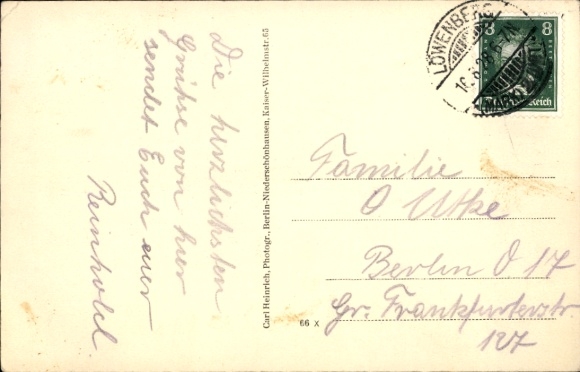 Die herzlichsten
Grüße von hier
sendet Euch euer
Reinhold.
Carl Heinrich, Photogr., Berlin-Niederschönhausen, Kaiser-Wilhelmstr. 65
66 X
LÖWENBERG
8 8
Reich
Familie
O Utke
Berlin O 17
Gr. Frankfurterstr
127